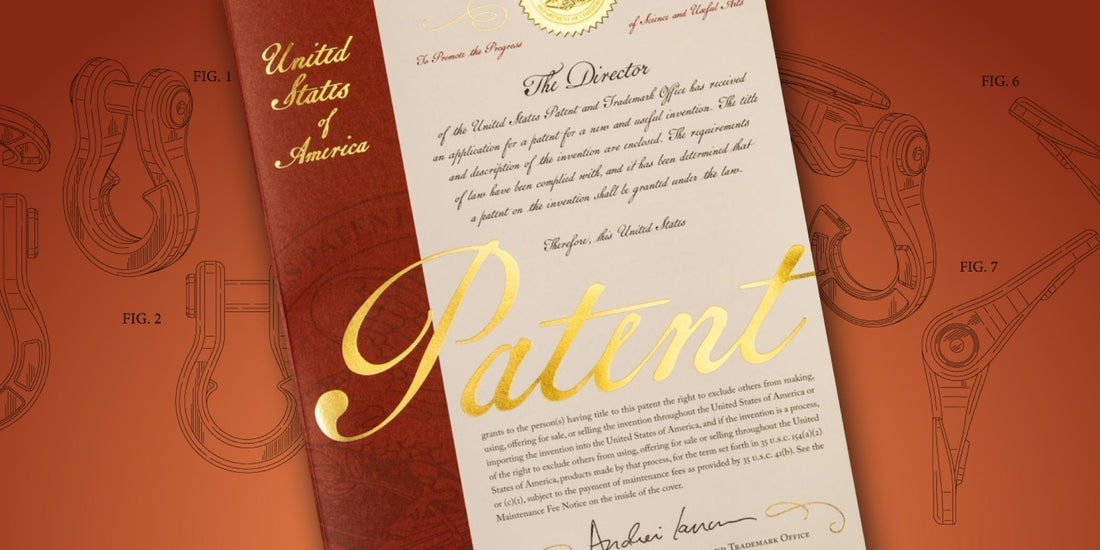 FIG. 1
FIG. 2
FIG. 6
FIG. 7
United
States
of
America
To Promote the Progress
of Science and Useful Arts
The Director
of the United States Patent and Trademark Office has received
an application for a patent for a new and useful invention. The title
and description of the invention are enclosed. The requirements
of law have been complied with, and it has been determined that
a patent on the invention shall be granted under the law.
Therefore, this United States
Patent
grants to the person(s) having title to this patent the right to exclude others from making,
using, offering for sale, or selling the invention throughout the United States of America or
importing the invention into the United States of America, and if the invention is a process,
of the right to exclude others from using, offering for sale or selling throughout the United
States of America, products made by that process, for the term set forth in 35 U.S.C. 154(a)(2)
or (c)(1), subject to the payment of maintenance fees as provided by 35 U.S.C. 41(b). See the
Maintenance Fee Notice on the inside of the cover.
Trademark Office